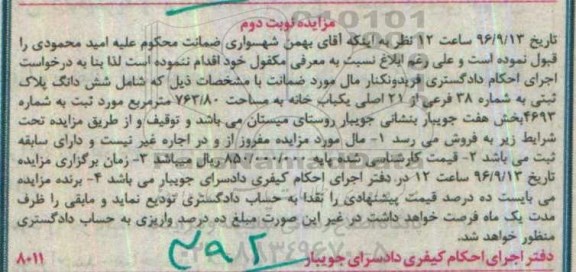 مزایده نوبت دوم
تاریخ ۹۶/۹/۱۳ ساعت ۱۲ نظر به اینکه آقای بهمن شهسواری ضمانت محکوم علیه امید محمودی را
قبول نموده است و علی رغم ابلاغ نسبت به معرفی مکفول خود اقدام ننموده است لذا بنا به درخواست
اجرای احکام دادگستری فریدونکنار مال مورد ضمانت با مشخصات ذیل که شامل شش دانگ پلاک
ثبتی به شماره ۳۸ فرعی از ۲۱ اصلی یکباب خانه به مساحت ۷۶۳/۸۰ مترمربع مورد ثبت به شماره
۴۶۹۳بخش هفت جویبار بنشانی جویبار روستای میستان می باشد و توقیف و از طریق مزایده تحت
شرایط زیر به فروش می رسد ۱- مال مورد مزایده مفروز از و در اجاره غیر نیست و دارای سابقه
ثبت می باشد ۲- قیمت کارشناسی شده پایه ۸۵۰/۰۰۰/۰۰۰ ریال میباشد ۳- زمان برگزاری مزایده
تاریخ ۹۶/۹/۱۳ ساعت ۱۲ در دفتر اجرای احکام کیفری دادسرای جویبار می باشد ۴- برنده مزایده
می بایست ده درصد قیمت پیشنهادی را نقدا به حساب دادگستری تودیع نماید و مابقی را ظرف
مدت یک ماه فرصت خواهد داشت در غیر این صورت مبلغ ده درصد واریزی به حساب دادگستری
منظور خواهد شد.
دفتر اجرای احکام کیفری دادسرای جویبار ۸۰۱۱